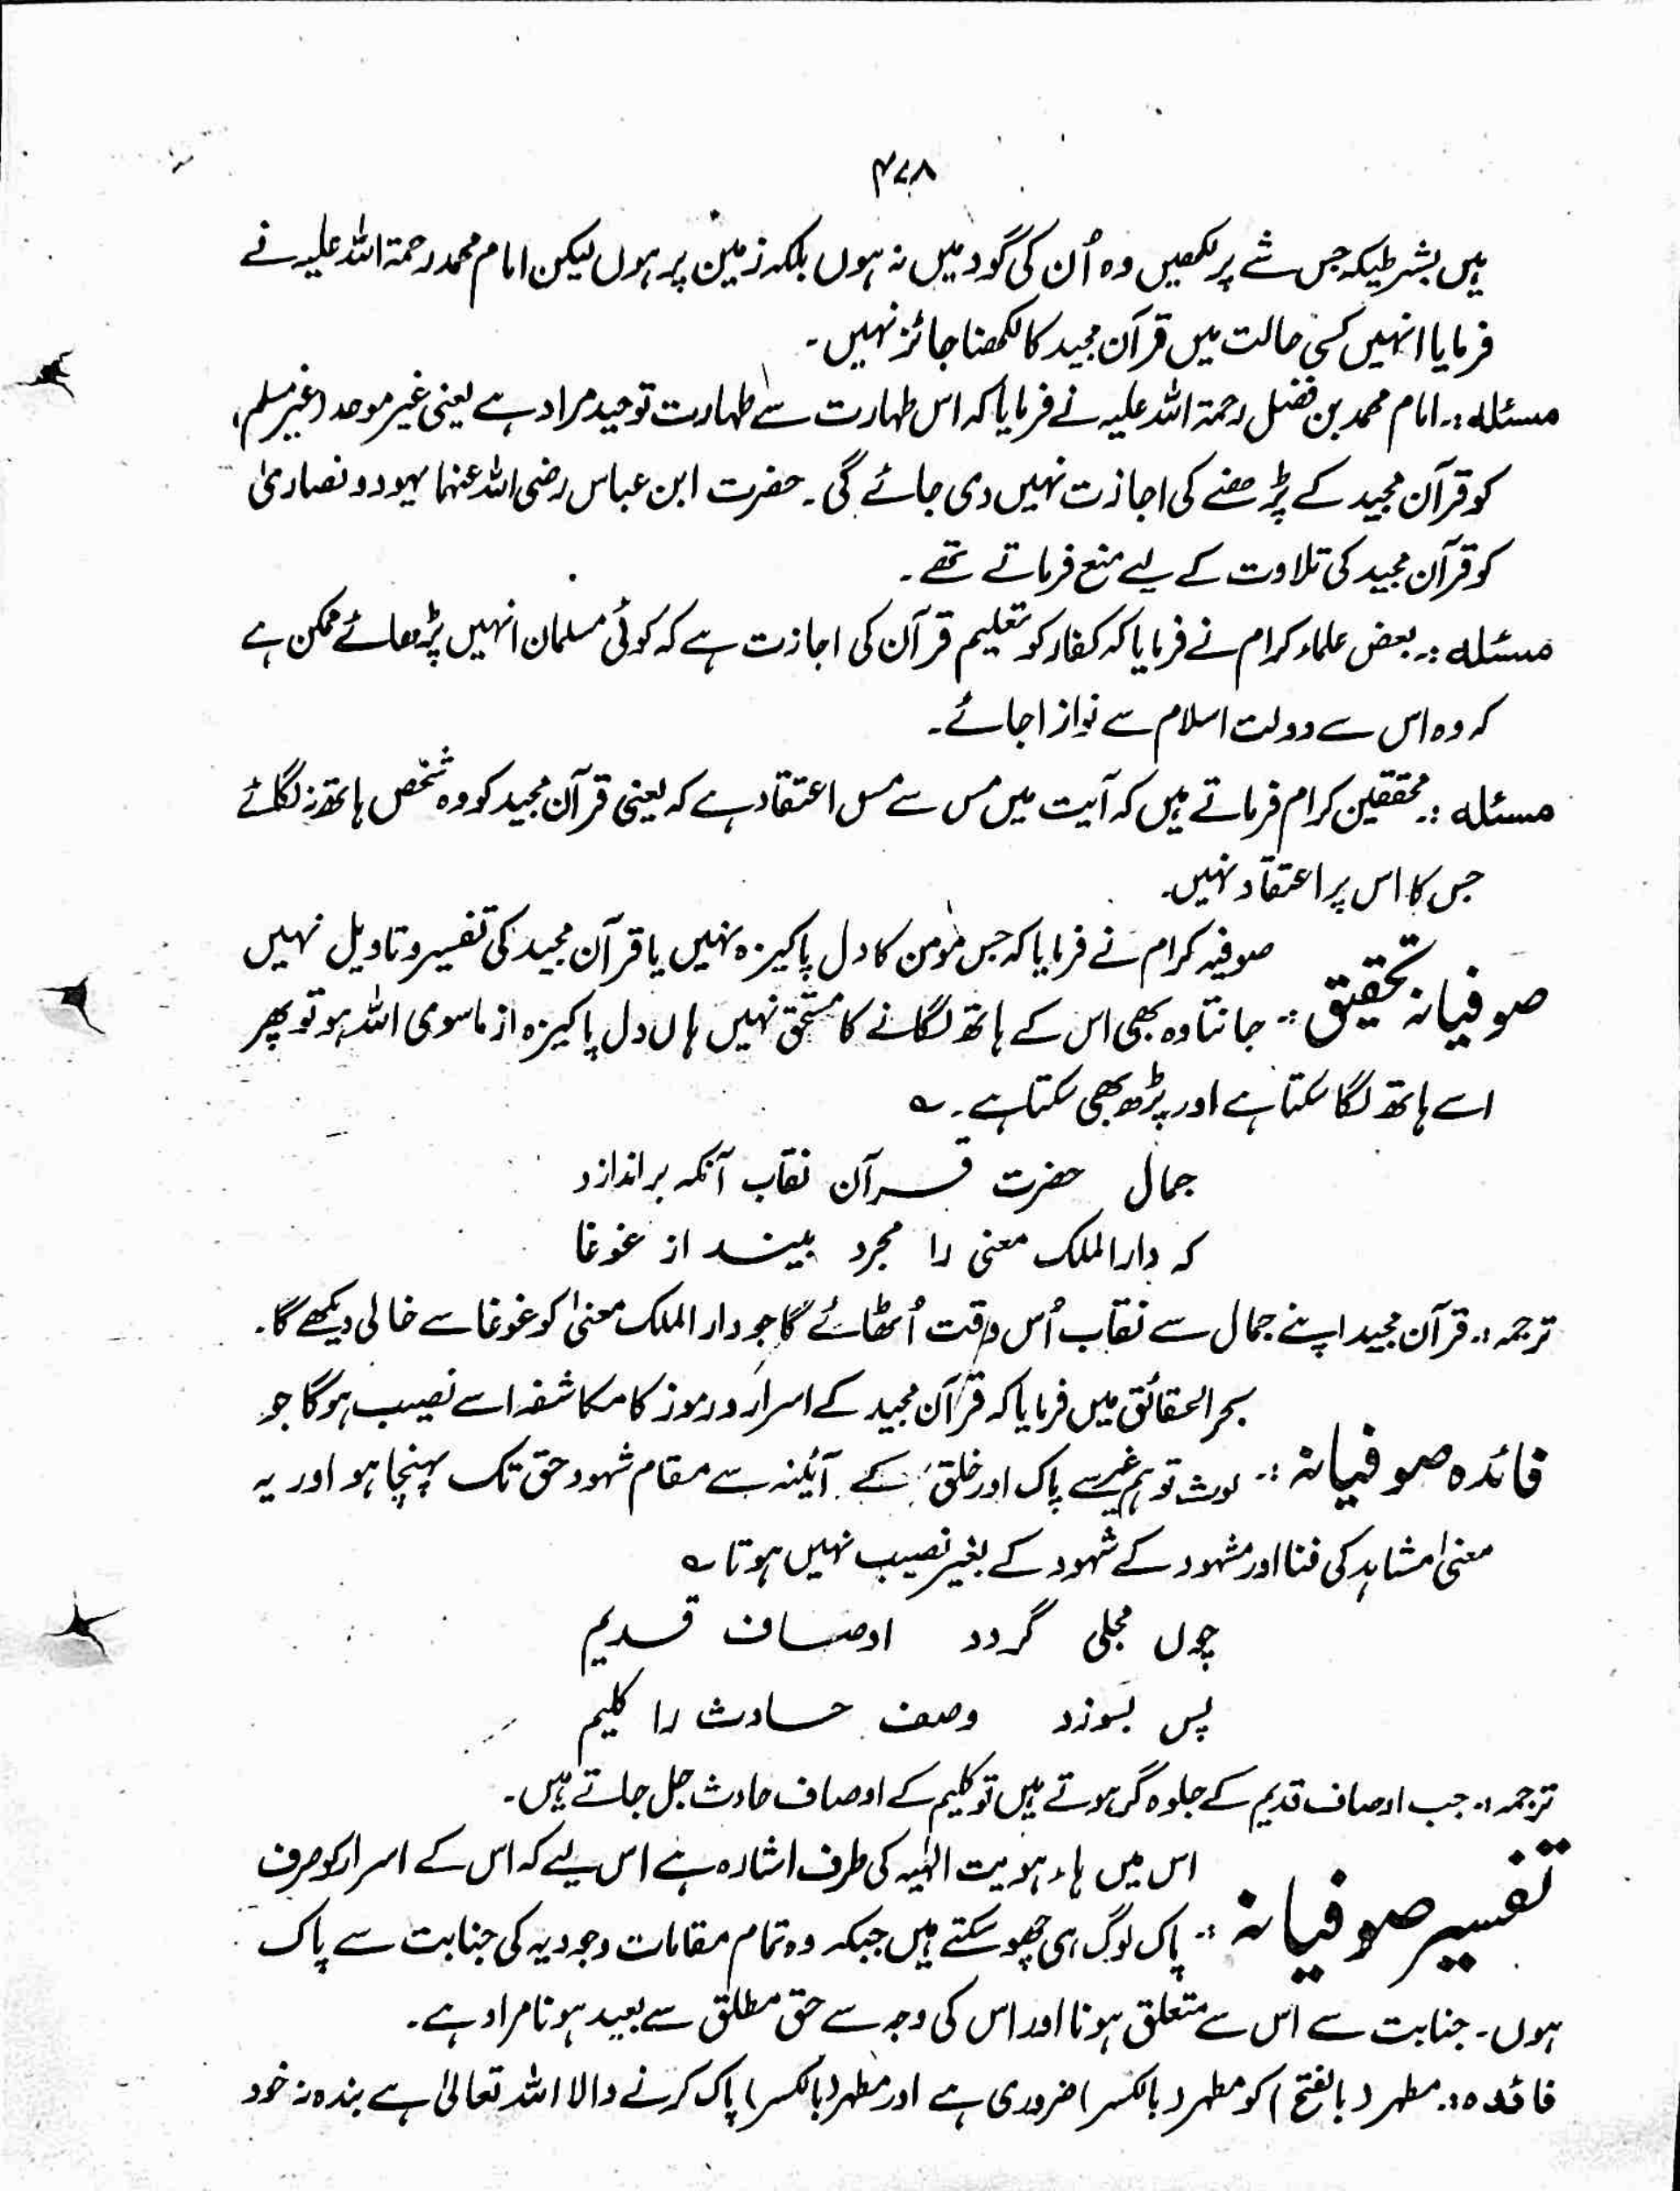 ۴۷۸
ہیں بشرطیکہ جس شے پر لکھیں وہ اُن کی گود میں نہ ہوں بلکہ زمین پر ہوں لیکن امام محمد رحمۃ اللہ علیہ نے
فرمایا انہیں کسی حالت میں قرآن مجید کا لکھنا جائز نہیں۔
مسئلہ :۔ امام محمد بن فضل رحمۃ اللہ علیہ نے فرمایا کہ اس طہارت سے طہارت توحید مراد ہے یعنی غیر موحد (غیر مسلم)
کو قرآن مجید کے پڑھنے کی اجازت نہیں دی جائے گی۔ حضرت ابن عباس رضی اللہ عنہما یہود و نصاریٰ
کو قرآن مجید کی تلاوت کے لیے منع فرماتے تھے۔
مسئلہ :۔ بعض علماء کرام نے فرمایا کہ کفار کو تعلیم قرآن کی اجازت ہے کہ کوئی مسلمان انہیں پڑھائے ممکن ہے
کہ وہ اس سے دولت اسلام سے نوازا جائے۔
مسئلہ :۔ محققین کرام فرماتے ہیں کہ آیت میں مس سے مس اعتقاد ہے کہ یعنی قرآن مجید کو وہ شخص ہاتھ نہ لگائے
جس کا اس پر اعتقاد نہیں۔
صوفیہ کرام نے فرمایا کہ جس مومن کا دل پاکیزہ نہیں یا قرآن مجید کی تفسیر و تاویل نہیں
صوفیانہ تحقیق :۔ جانتا وہ بھی اس کے ہاتھ لگانے کا مستحق نہیں ہاں دل پاکیزہ از ماسوی اللہ ہو تو پھر
اسے ہاتھ لگا سکتا ہے اور پڑھ بھی سکتا ہے۔ ؎
جمال حضرت قرآن نقاب آنکہ براندازد
کہ دارالملک معنی را مجرد بیند از غوغا
ترجمہ :۔ قرآن مجید اپنے جمال سے نقاب اُس وقت اُٹھائے گا جو دار الملک معنیٰ کو غوغا سے خالی دیکھے گا۔
بحر الحقائق میں فرمایا کہ قرآن مجید کے اسرار و رموز کا مکاشفہ اسے نصیب ہوگا جو
فائدہ صوفیانہ :۔ لوث توہم غیر سے پاک اور خلق کے آئینہ سے مقام شہود حق تک پہنچا ہو اور یہ
معنیٰ مشاہد کی فنا اور مشہود کے شہود کے بغیر نصیب نہیں ہوتا ؎
چوں مجلی گردد اوصاف قدیم
پس بسوزد وصف حادث را کلیم
ترجمہ :۔ جب اوصاف قدیم کے جلوہ گر ہوتے ہیں تو کلیم کے اوصاف حادث جل جاتے ہیں۔
اس میں ہاء ہویت الٰہیہ کی طرف اشارہ ہے اس لیے کہ اس کے اسرار کو صرف
تفسیر صوفیانہ :۔ پاک لوگ ہی چھو سکتے ہیں جبکہ وہ تمام مقامات وجودیہ کی جنابت سے پاک
ہوں۔ جنابت سے اس سے متعلق ہونا اور اس کی وجہ سے حق مطلق سے بعید ہونا مراد ہے۔
فائدہ :۔ مطہر (بالفتح) کو مطہر (بالکسر) ضروری ہے اور مطہر (بالکسر) پاک کرنے والا اللہ تعالیٰ ہے بندہ نہ خود